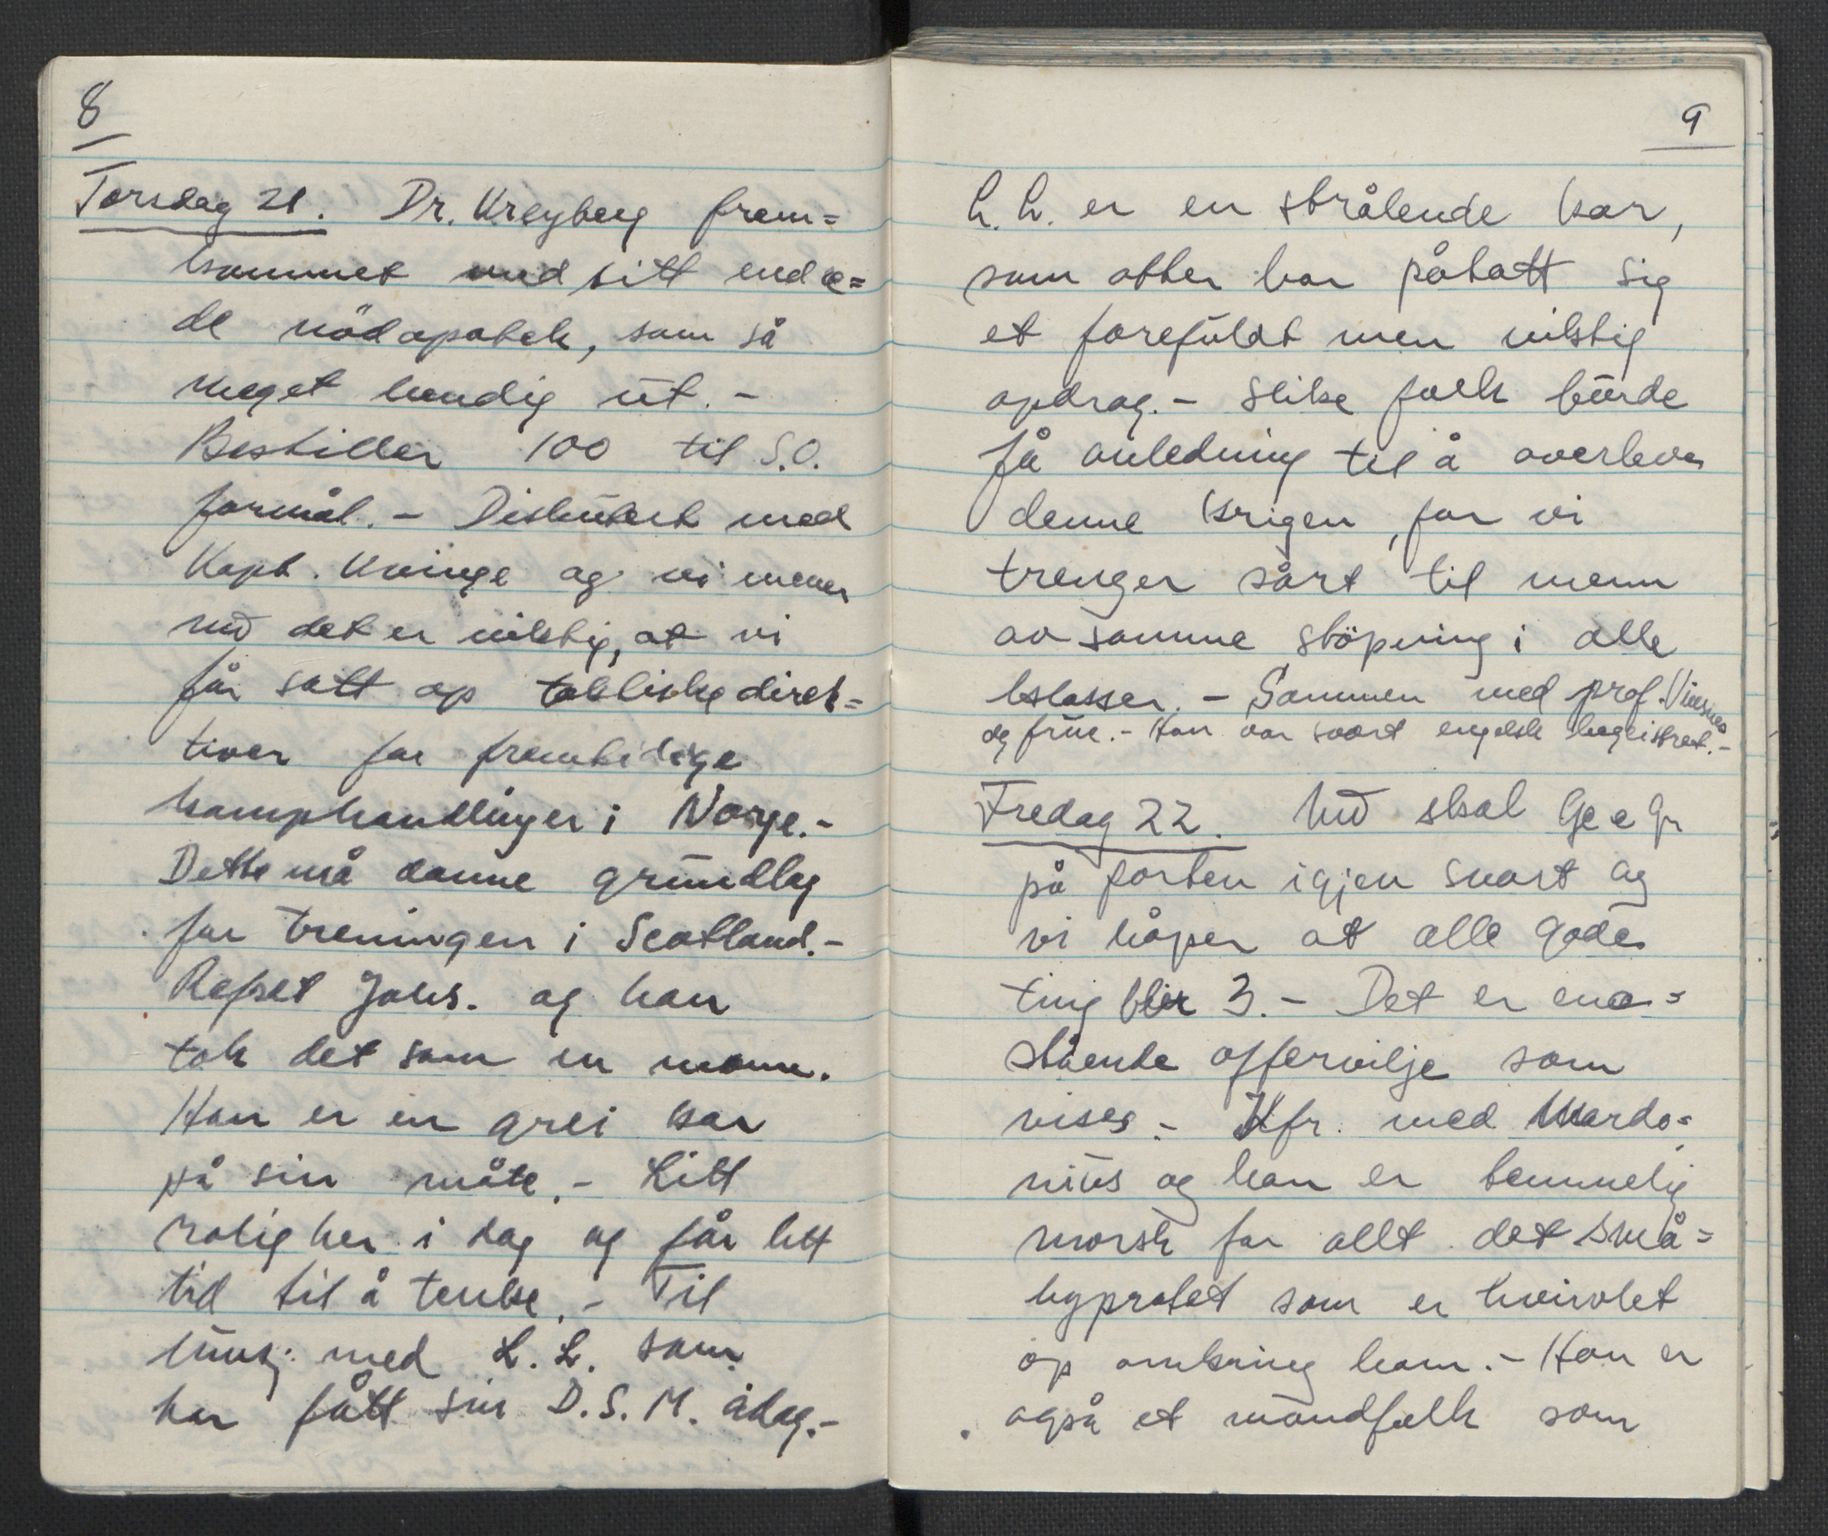 8
Torsdag 21. Dr. Kreyberg frem=
kommet med sitt ende=
de nödapotek, som så
meget hendig ut. -
Bestiller 100 til S.O.
formål. - Diskutert med
Kapt. Kvinge og vi mener
nu det er viktig, at vi
får satt op taktiske direk=
tiver for fremtidige
kamphandlinger i Norge. -
Dette må danne grundlag
for treningen i Scotland. -
Refset Johs. og han
tok det som en mann.
Han er en grei kar
på sin måte. - Litt
rolig her i dag og får litt
tid til å tenke. - Til
lunsj med L.L. som
har fått sin D.S.M. idag. -
9
L.L. er en strålende kar,
som atter har påtatt sig
et farefuldt men viktig
opdrag. - Slike folk burde
få anledning til å overleve
denne krigen, for vi
trenger sårt til menn
av samme stöpning i alle
klasser. - Sammen med prof. Vinsnes
og frue. - Han var svært engelsk begeistret. -
Fredag 22. Nu skal Gegr
på farten igjen snart og
vi håper at alle gode
ting blir 3. - Det er ena=
stående offervilje som
vises. - Kfr. med Mardo=
nius og han er temmelig
morsk for allt det små=
hypratet som er hvirvlet
op omkring ham. - Han er
også et mandfolk som